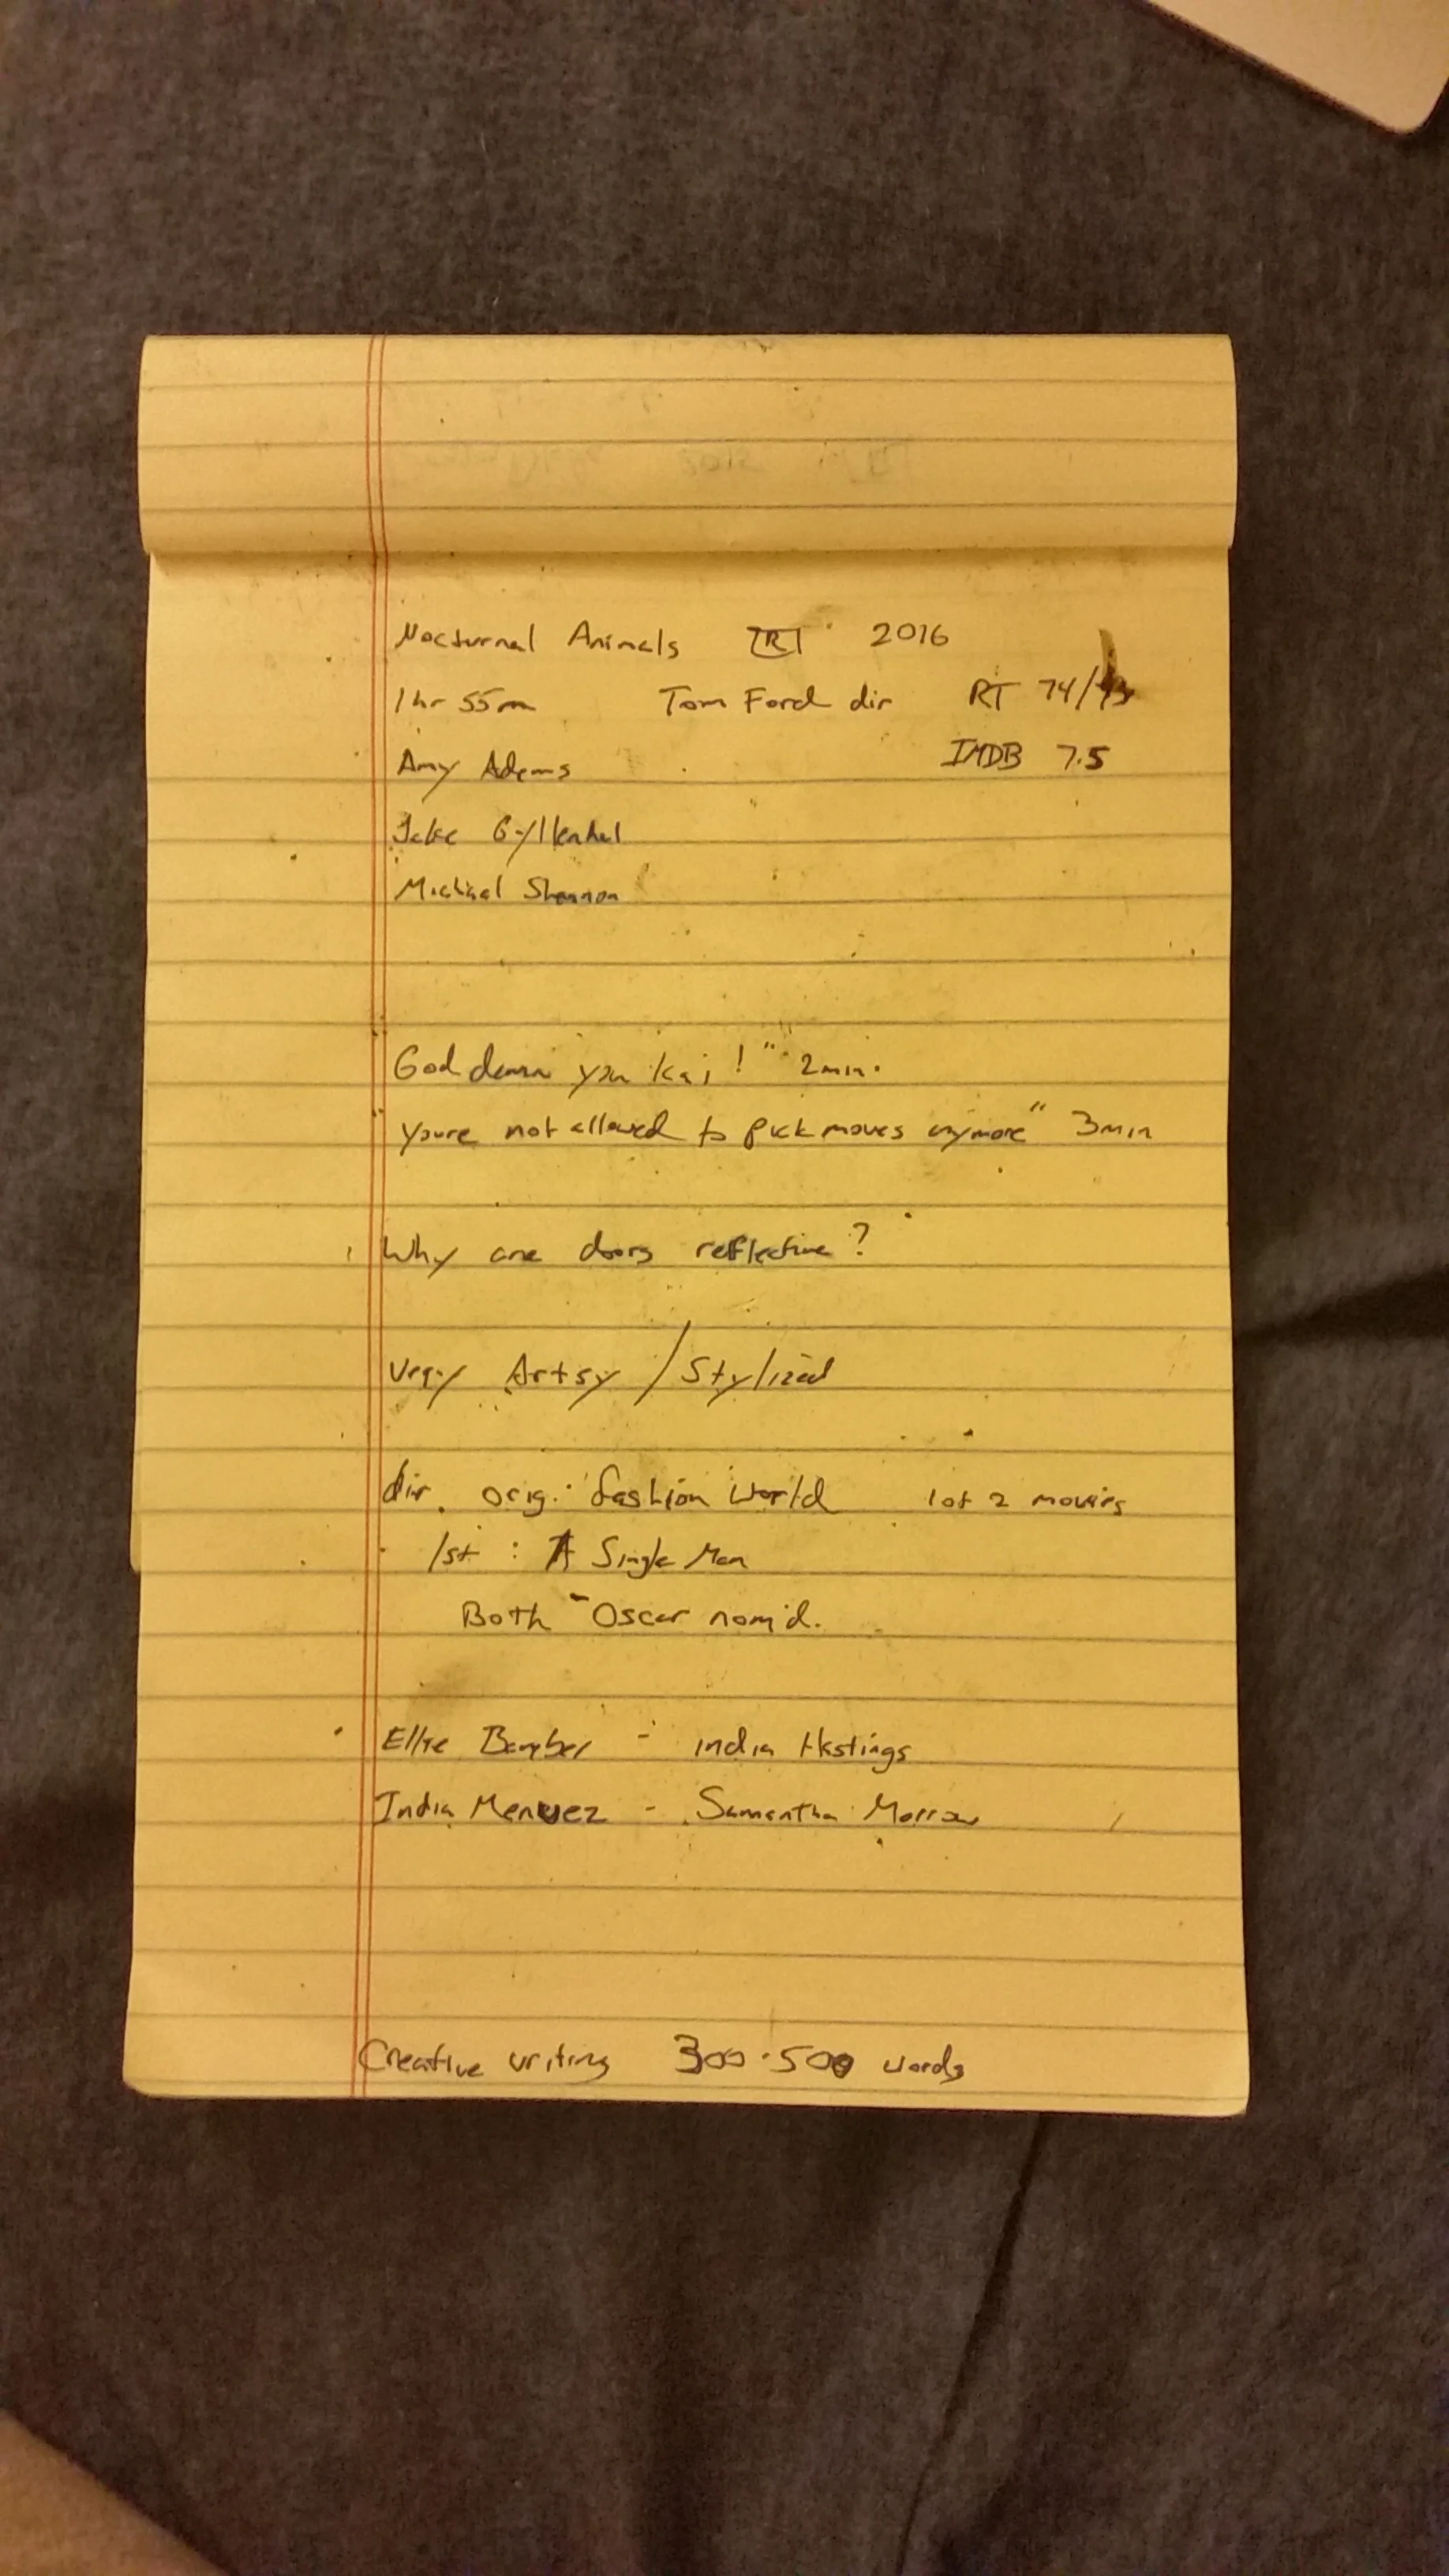 Nocturnal Animals R 2016
1hr 55m Tom Ford dir RT 74/73
Amy Adams IMDB 7.5
Jake Gyllenhal
Michael Shannon
"God damn you Kai!" 2min.
"youre not allowed to pick moves anymore" 3min
Why are doors reflective?
Very Artsy / Stylized
dir. orig: fashion world 1 of 2 movies
1st: A Single Man
Both Oscar nom'd.
Ellie Bamber - india Hastings
India Menuez - Samantha Morrow
Creative writing 300-500 words